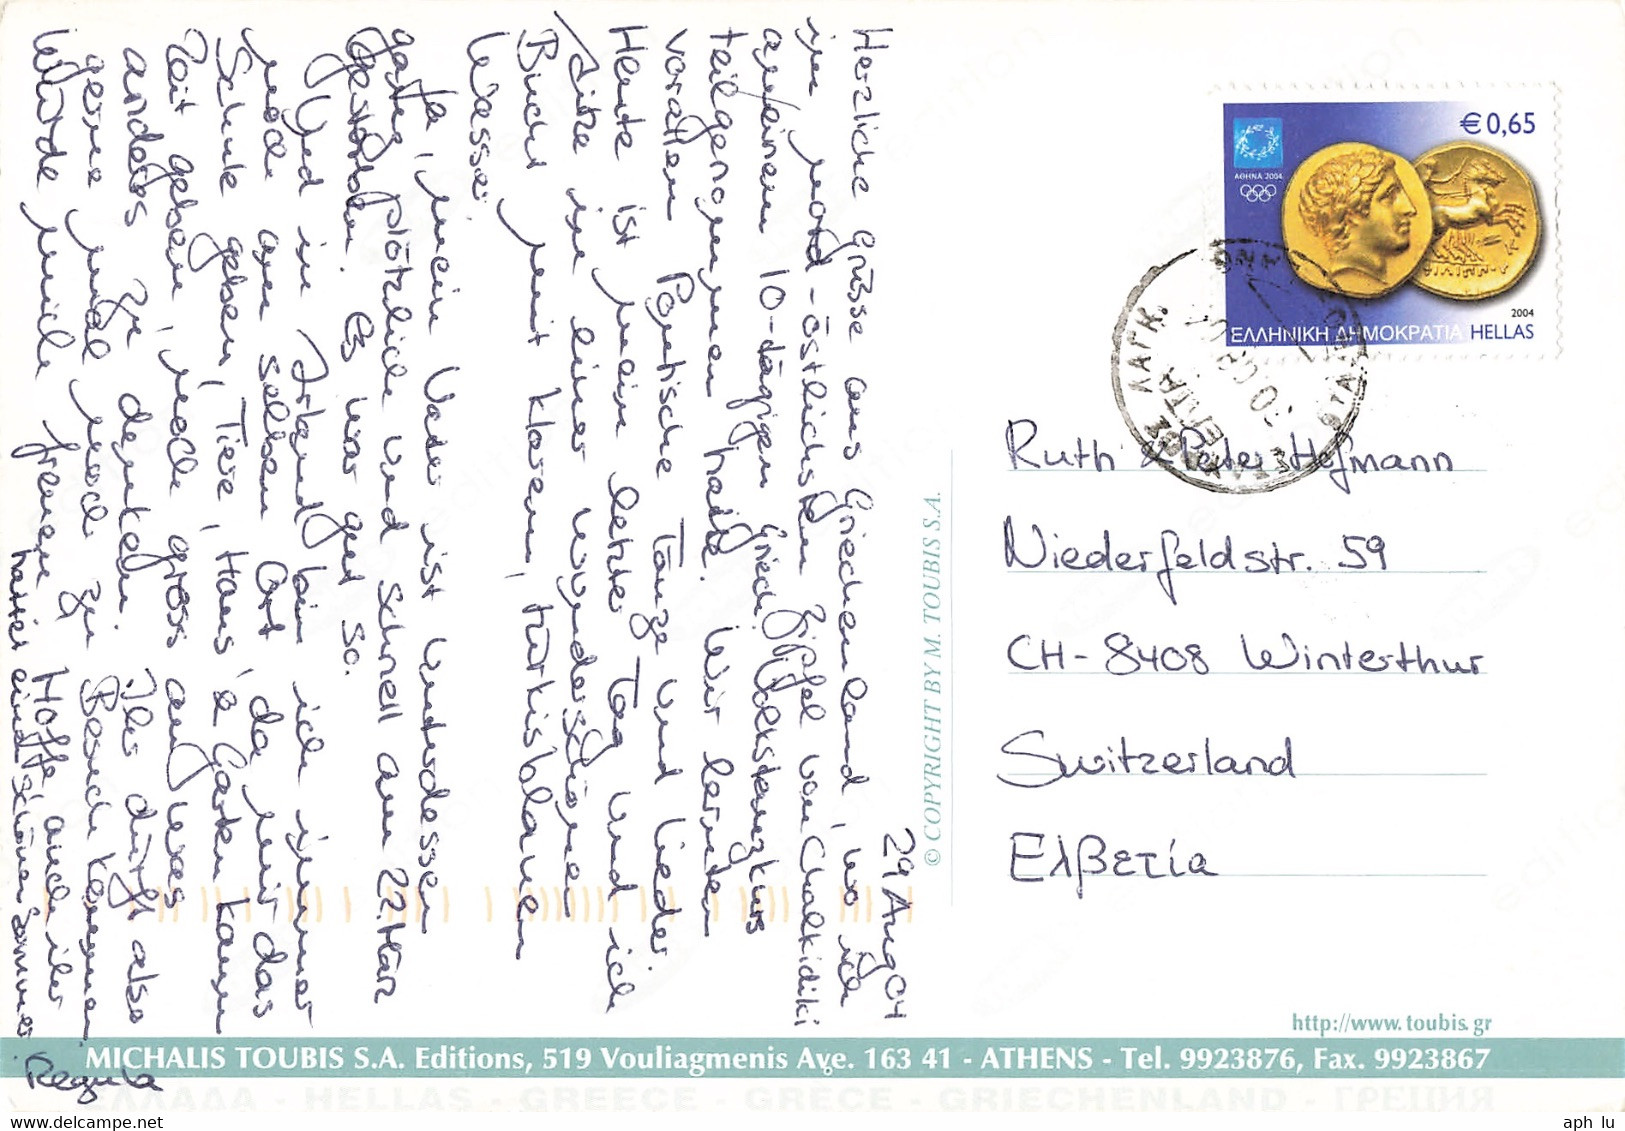 29 Aug 04
Herzliche Grüsse aus Griechenland, wo ich
im nord-östlichsten Zipfel von Chalkidiki
an einem 10-tägigen Griech. Volkstanzkurs
teilgenommen habe. Wir lernten
vor allem Pontische Tänze und Lieder.
Heute ist mein letzter Tag und ich
sitze in einer wunderschönen
Bucht mit klarem, türkisblauem
Wasser.
Ja, mein Vater ist unterdessen
ganz plötzlich und schnell am 22. März
gestorben. Es war gut so.
Und in Irland bin ich immer
noch am selben Ort da mir das
Schule geben, Tiere, Haus & Garten kaum
Zeit geben, noch gross an was
anderes zu denken. Ihr dürft also
gerne mal noch zu Besuch kommen
Würde mich freuen. Hoffe auch ihr
hattet einen schönen Sommer.
Regula
© COPYRIGHT BY M. TOUBIS S.A.
€0,65
ΑΘΗΝΑ 2004
ΦΙΛΙΠΠΟΥ
2004
ΕΛΛΗΝΙΚΗ ΔΗΜΟΚΡΑΤΙΑ HELLAS
Ruth & Peter Hofmann
Niederfeldstr. 59
CH-8408 Winterthur
Switzerland
Ελβετία
http://www.toubis.gr
MICHALIS TOUBIS S.A. Editions, 519 Vouliagmenis Ave. 163 41 - ATHENS - Tel. 9923876, Fax. 9923867
ΕΛΛΑΔΑ - HELLAS - GREECE - GRÈCE - GRIECHENLAND - ГРЕЦИЯ
aph lu